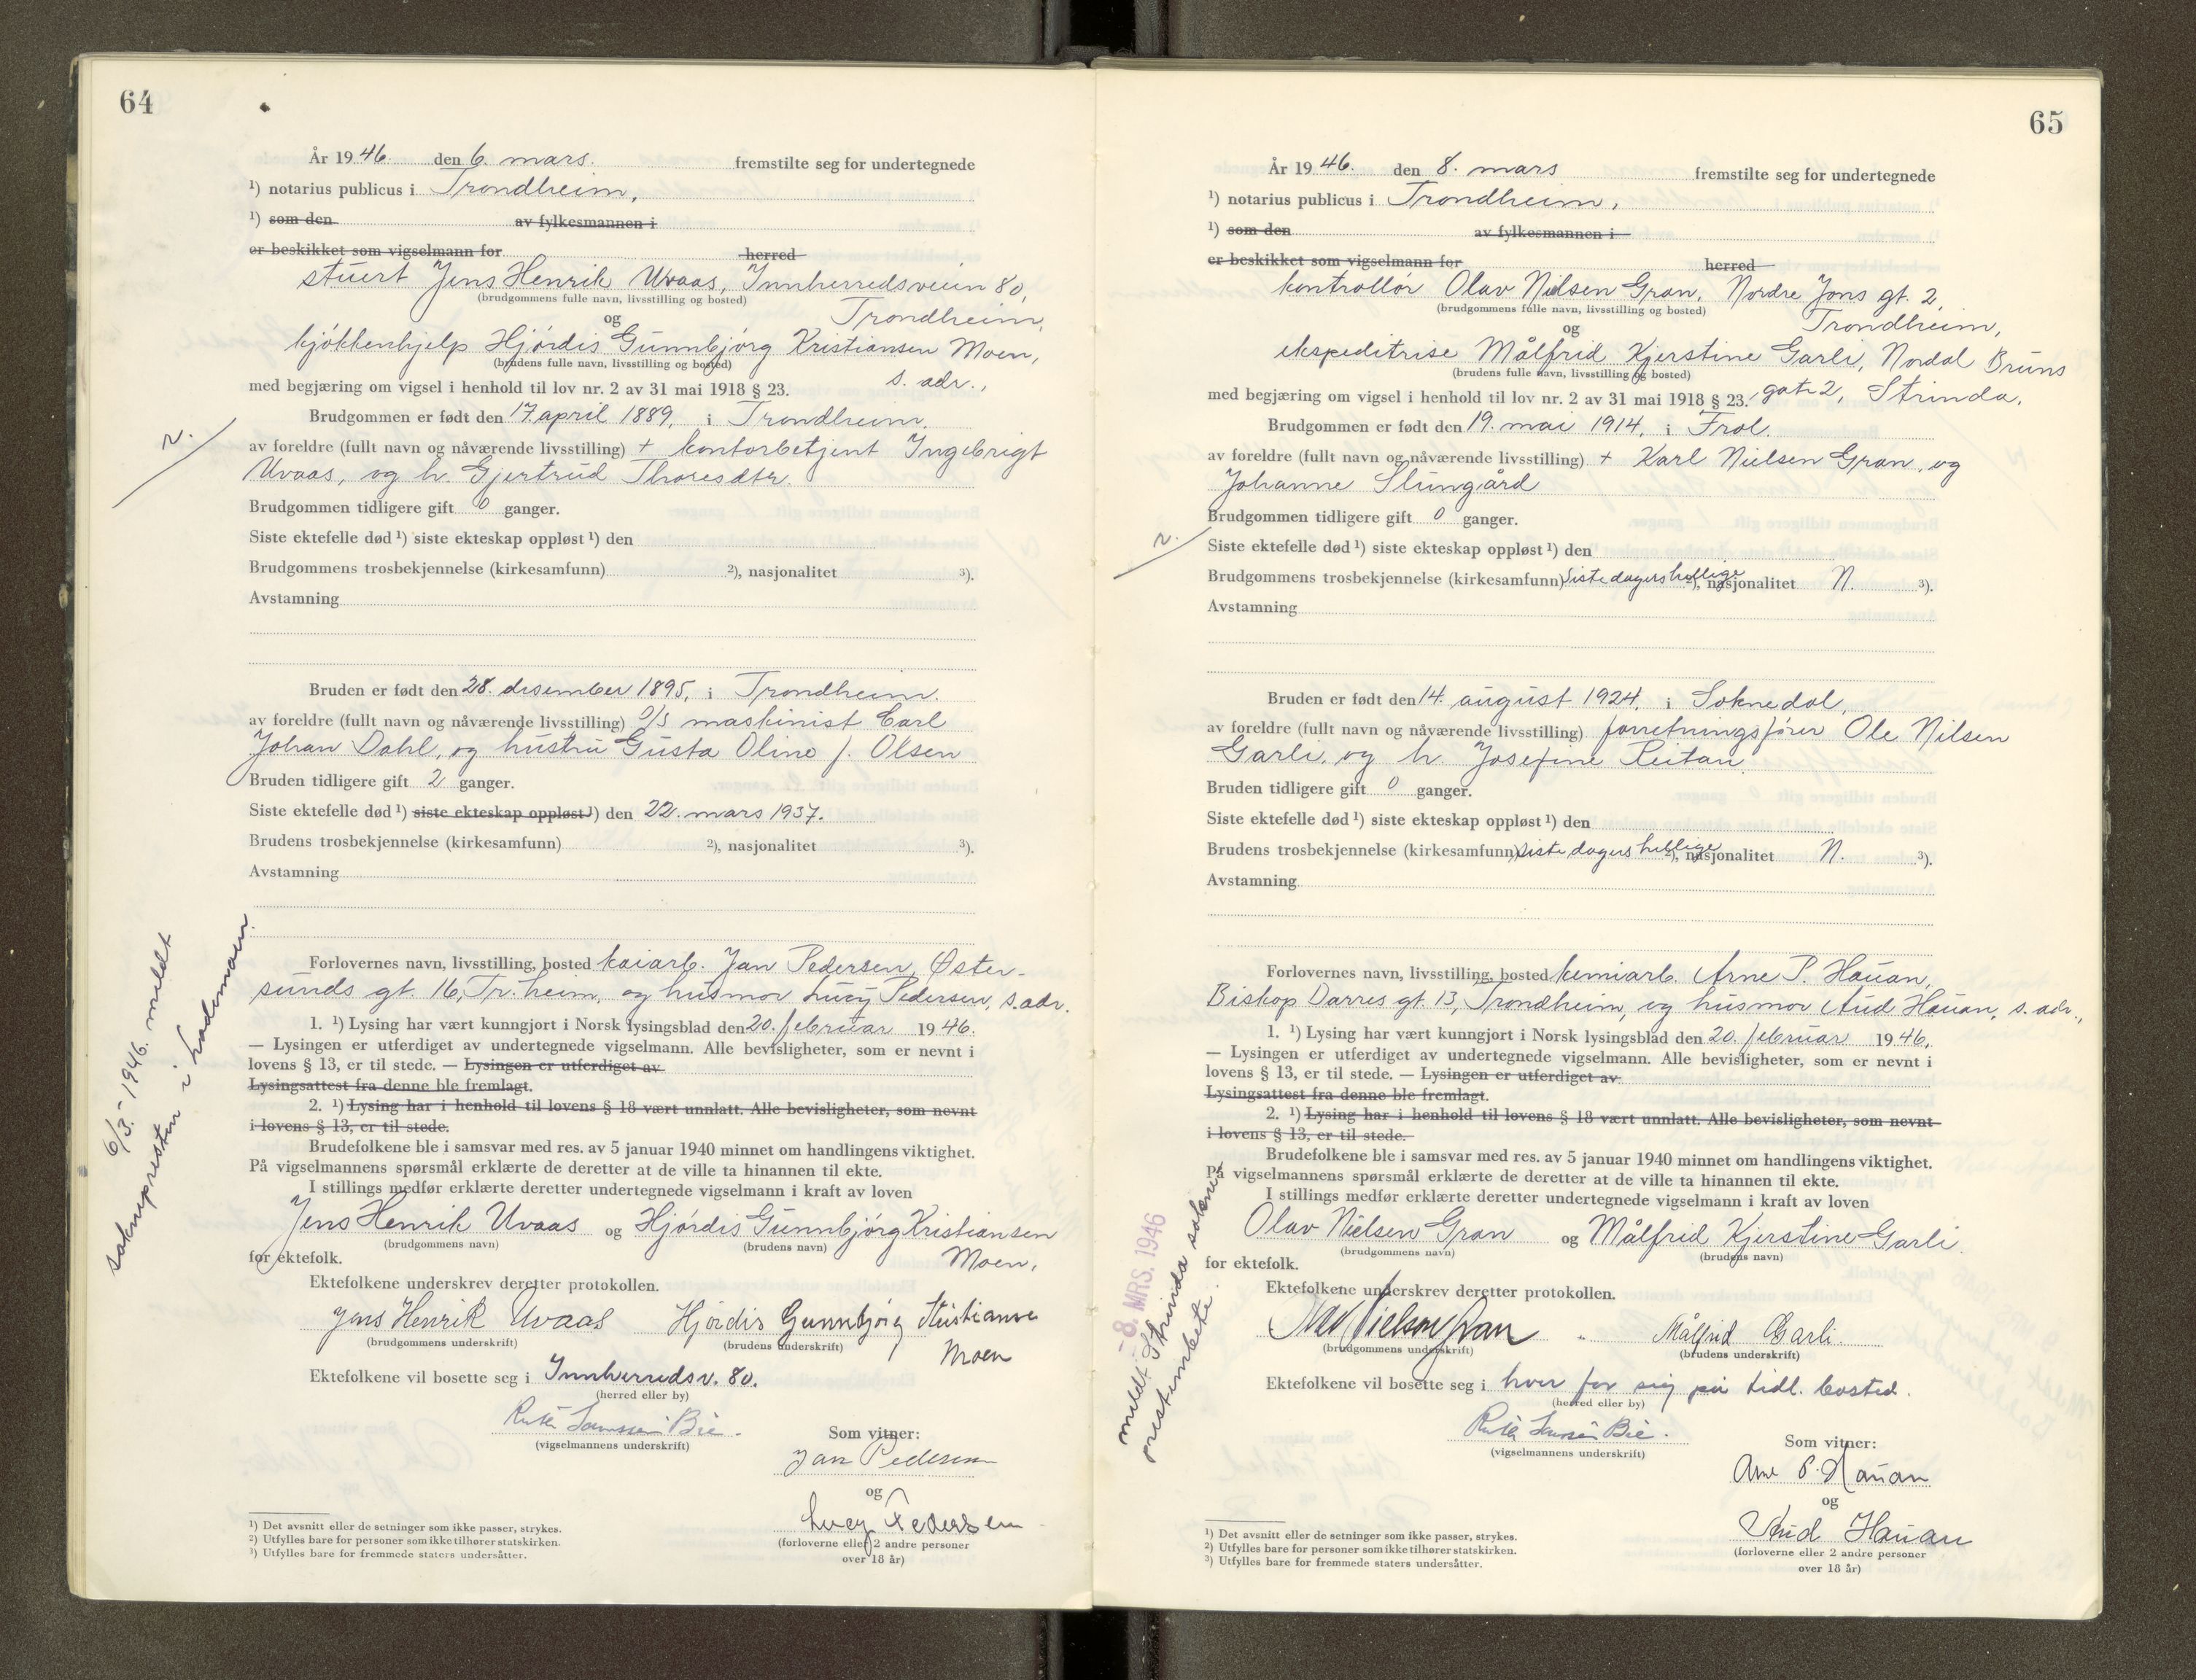 64
År 1946. den 6. mars. fremstilte seg for undertegnede
¹) notarius publicus i Trondheim,
¹) som den av fylkesmannen i
er beskikket som vigselmann for herred
stuert Jens Henrik Uvaas, Innherredsveien 80,
(brudgommens fulle navn, livsstilling og bosted)
og Trondheim,
kjøkkenhjelp Hjördis Gunnbjörg Kristiansen Moen,
(brudens fulle navn, livsstilling og bosted)
med begjæring om vigsel i henhold til lov nr. 2 av 31 mai 1918 § 23. s. adr.,
Brudgommen er født den 17. april 1889, i Trondheim.
av foreldre (fullt navn og nåværende livsstilling) + kontorbetjent Ingebrigt
Uvaas, og h. Gjertrud Thoresdtr.
Brudgommen tidligere gift 0 ganger.
Siste ektefelle død ¹) siste ekteskap oppløst ¹) den
Brudgommens trosbekjennelse (kirkesamfunn) ²), nasjonalitet ³).
Avstamning
Bruden er født den 28. desember 1895, i Trondheim.
av foreldre (fullt navn og nåværende livsstilling) d/s maskinist Carl
Johan Dahl, og hustru Gusta Oline f. Olsen
Bruden tidligere gift 2 ganger.
Siste ektefelle død ¹) siste ekteskap oppløst ¹) den 22. mars 1937.
Brudens trosbekjennelse (kirkesamfunn) ²), nasjonalitet ³).
Avstamning
Forlovernes navn, livsstilling, bosted kaiarb. Jan Pedersen, Øster-
sunds gt. 16, Tr.heim, og husmor Lucy Pedersen, s. adr.
1. ¹) Lysing har vært kunngjort i Norsk lysingsblad den 20. februar 1946.
— Lysingen er utferdiget av undertegnede vigselmann. Alle bevisligheter, som er nevnt i
lovens § 13, er til stede. — Lysingen er utferdiget av
Lysingsattest fra denne ble fremlagt.
2. ¹) Lysing har i henhold til lovens § 18 vært unnlatt. Alle bevisligheter, som nevnt
i lovens § 13, er til stede.
Brudefolkene ble i samsvar med res. av 5 januar 1940 minnet om handlingens viktighet.
På vigselmannens spørsmål erklærte de deretter at de ville ta hinannen til ekte.
I stillings medfør erklærte deretter undertegnede vigselmann i kraft av loven
Jens Henrik Uvaas og Hjördis Gunnbjörg Kristiansen
(brudgommens navn) (brudens navn)
for ektefolk. Moen,
Ektefolkene underskrev deretter protokollen.
Jens Henrik Uvaas Hjördis Gunnbjörg Kristiansen
(brudgommens underskrift) (brudens underskrift)
Moen
Ektefolkene vil bosette seg i Innherredsv. 80.
(herred eller by)
(vigselmannens underskrift)
Som vitner:
Jan Pedersen
og
Lucy Pedersen
(forloverne eller 2 andre personer
over 18 år)
¹) Det avsnitt eller de setninger som ikke passer, strykes.
²) Utfylles bare for personer som ikke tilhører statskirken.
³) Utfylles bare for fremmede staters undersåtter.
6/3.-1946. meldt
soknepresten i Lademoen.
65
År 1946. den 8. mars fremstilte seg for undertegnede
¹) notarius publicus i Trondheim,
¹) som den av fylkesmannen i
er beskikket som vigselmann for herred
kontrollör Olav Nielsen Gran, Nordre Jons gt. 2,
(brudgommens fulle navn, livsstilling og bosted)
og Trondheim,
ekspeditrise Målfrid Kjerstine Garli, Nordal Bruns
(brudens fulle navn, livsstilling og bosted)
med begjæring om vigsel i henhold til lov nr. 2 av 31 mai 1918 § 23. gate 2, Strinda.
Brudgommen er født den 19. mai 1914, i Frol.
av foreldre (fullt navn og nåværende livsstilling) + Karl Nielsen Gran, og
Johanne Slungård
Brudgommen tidligere gift 0 ganger.
Siste ektefelle død ¹) siste ekteskap oppløst ¹) den
Brudgommens trosbekjennelse (kirkesamfunn) Siste dagers hellige ²), nasjonalitet N. ³).
Avstamning
Bruden er født den 14. august 1924, i Soknedal,
av foreldre (fullt navn og nåværende livsstilling) forretningsfører Ole Nilsen
Garli, og h. Josefine Reitan
Bruden tidligere gift 0 ganger.
Siste ektefelle død ¹) siste ekteskap oppløst ¹) den
Brudens trosbekjennelse (kirkesamfunn) Siste dagers hellige ²), nasjonalitet N. ³).
Avstamning
Forlovernes navn, livsstilling, bosted kemiarb. Arne P. Hauan,
Biskop Darres gt. 13, Trondheim, og husmor Aud Hauan, s. adr.,
1. ¹) Lysing har vært kunngjort i Norsk lysingsblad den 20. februar 1946.
— Lysingen er utferdiget av undertegnede vigselmann. Alle bevisligheter, som er nevnt i
lovens § 13, er til stede. — Lysingen er utferdiget av
Lysingsattest fra denne ble fremlagt.
2. ¹) Lysing har i henhold til lovens § 18 vært unnlatt. Alle bevisligheter, som nevnt
i lovens § 13, er til stede.
Brudefolkene ble i samsvar med res. av 5 januar 1940 minnet om handlingens viktighet.
På vigselmannens spørsmål erklærte de deretter at de ville ta hinannen til ekte.
I stillings medfør erklærte deretter undertegnede vigselmann i kraft av loven
Olav Nielsen Gran og Målfrid Kjerstine Garli.
(brudgommens navn) (brudens navn)
for ektefolk.
Ektefolkene underskrev deretter protokollen.
Olav Nielsen Gran Målfrid Garli.
(brudgommens underskrift) (brudens underskrift)
Ektefolkene vil bosette seg i hver for sig på tidl. bosted.
(herred eller by)
(vigselmannens underskrift)
Som vitner:
Arne P. Hauan
og
Aud Hauan
(forloverne eller 2 andre personer
over 18 år)
¹) Det avsnitt eller de setninger som ikke passer, strykes.
²) Utfylles bare for personer som ikke tilhører statskirken.
³) Utfylles bare for fremmede staters undersåtter.
-8. MRS. 1946
meldt Strinda sokne-
prestembete.